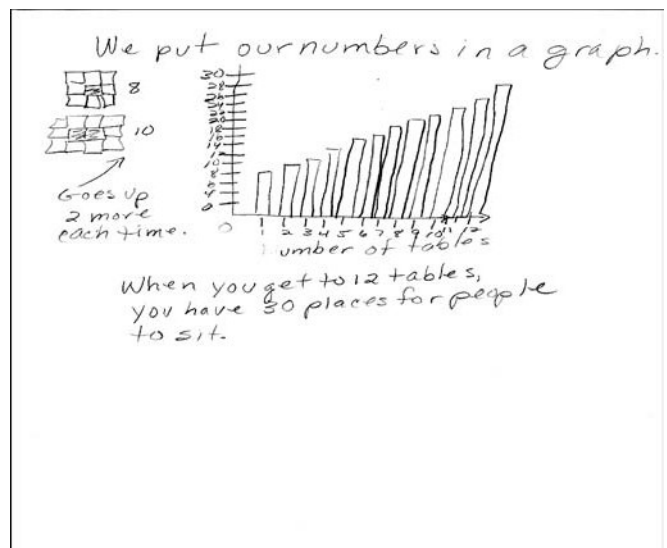 We put our numbers in a graph.
8
10
Goes up
2 more
each time.
30
28
26
24
22
20
18
16
14
12
10
8
6
4
0
0
1 2 3 4 5 6 7 8 9 10 11 12
Number of tables
When you get to 12 tables,
you have 30 places for people
to sit.